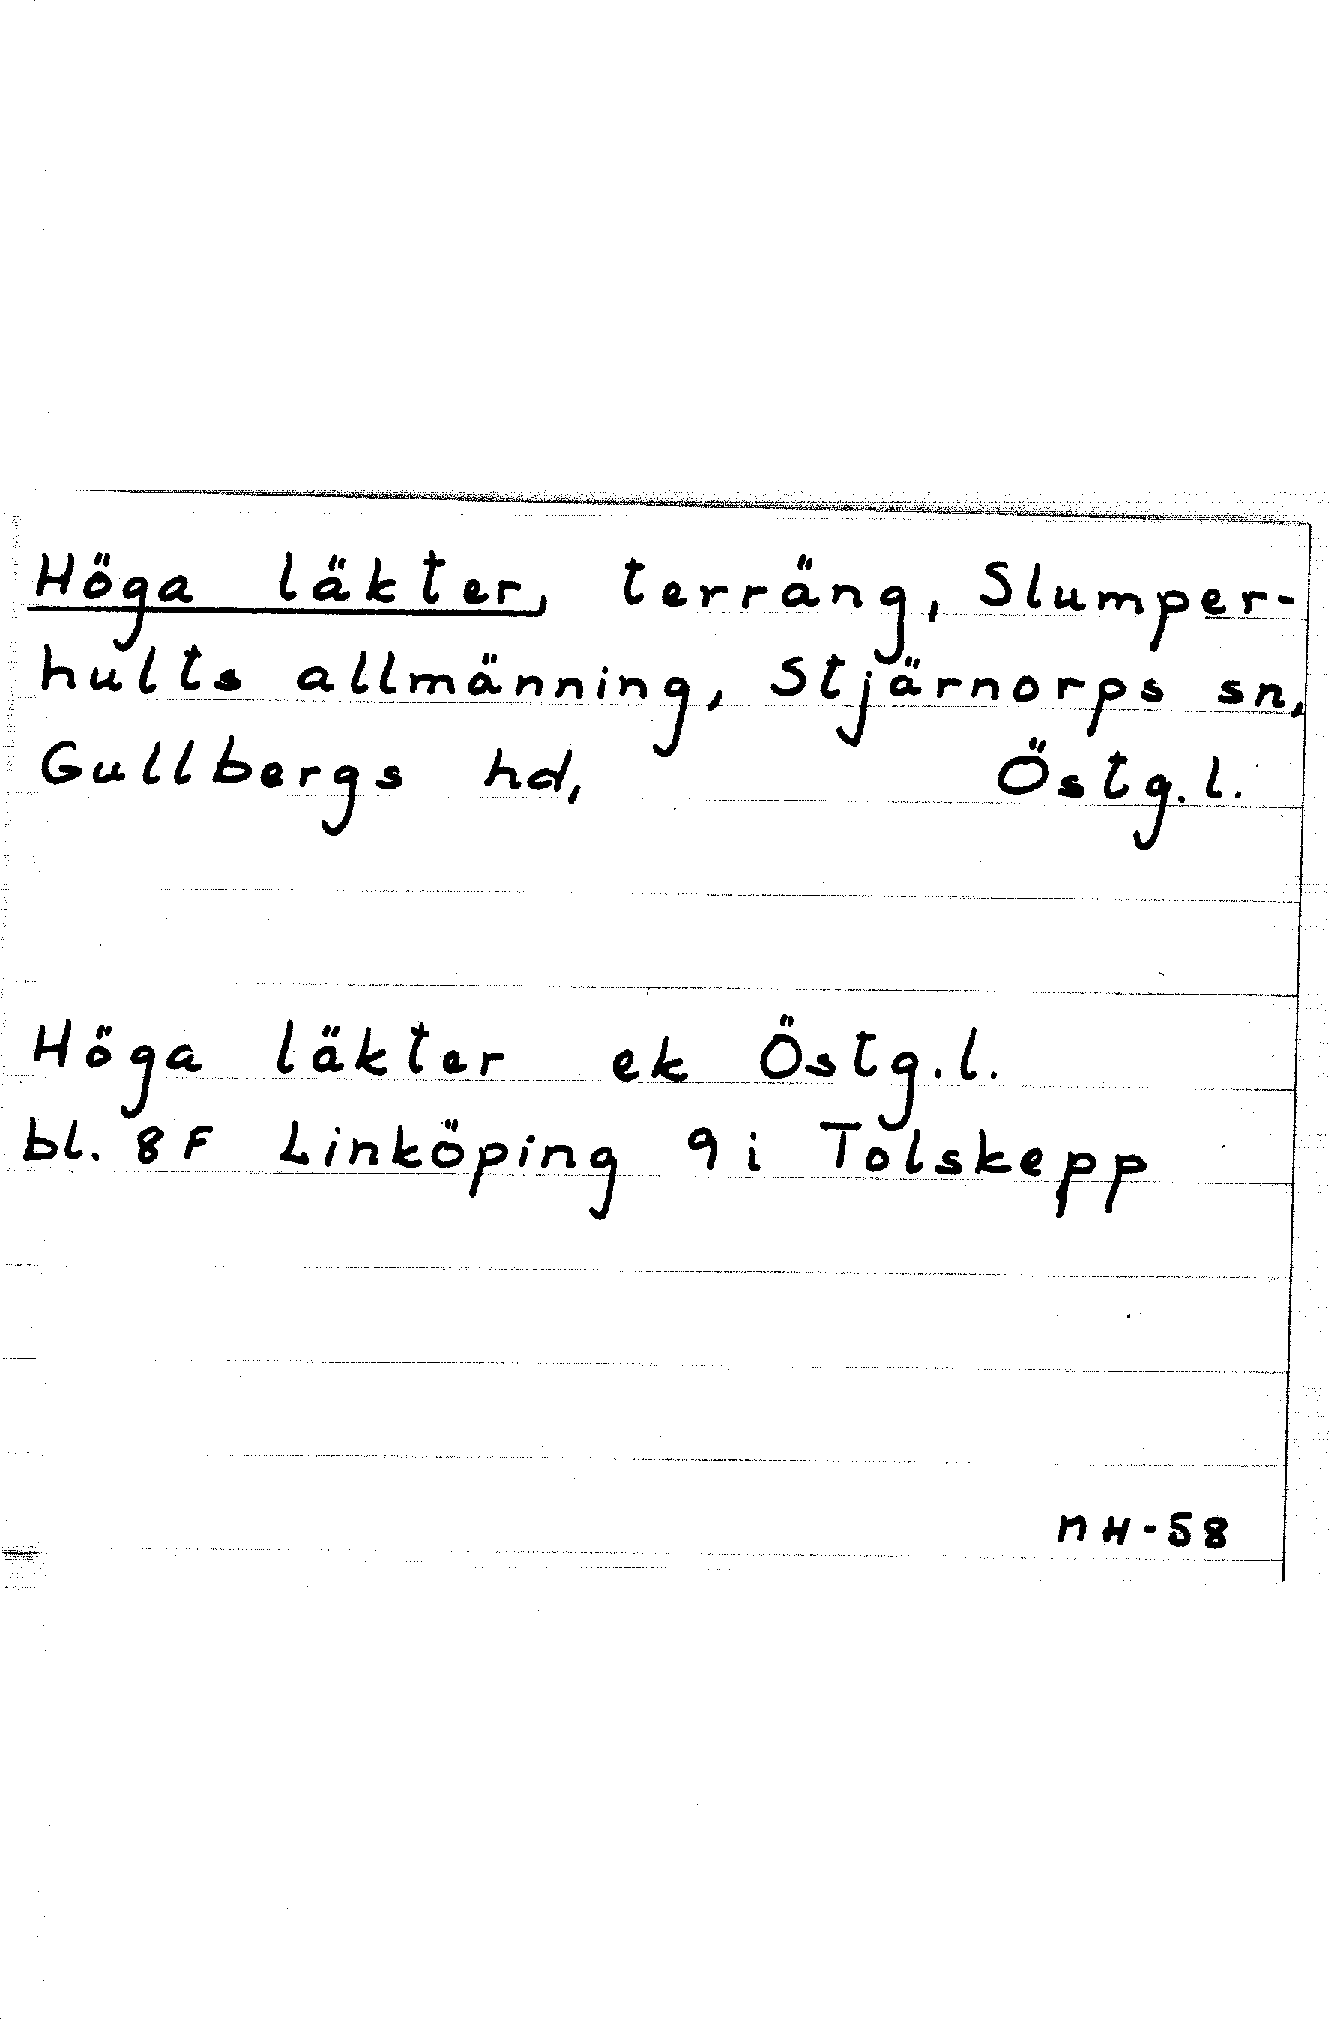 Höga läkter, terräng, Slumper-
hults allmänning, Stjärnorps sn,
Gullbergs hd, Östg.l.
Höga läkter ek Östg.l.
bl. 8F Linköping 9i Tolskepp
nH-58